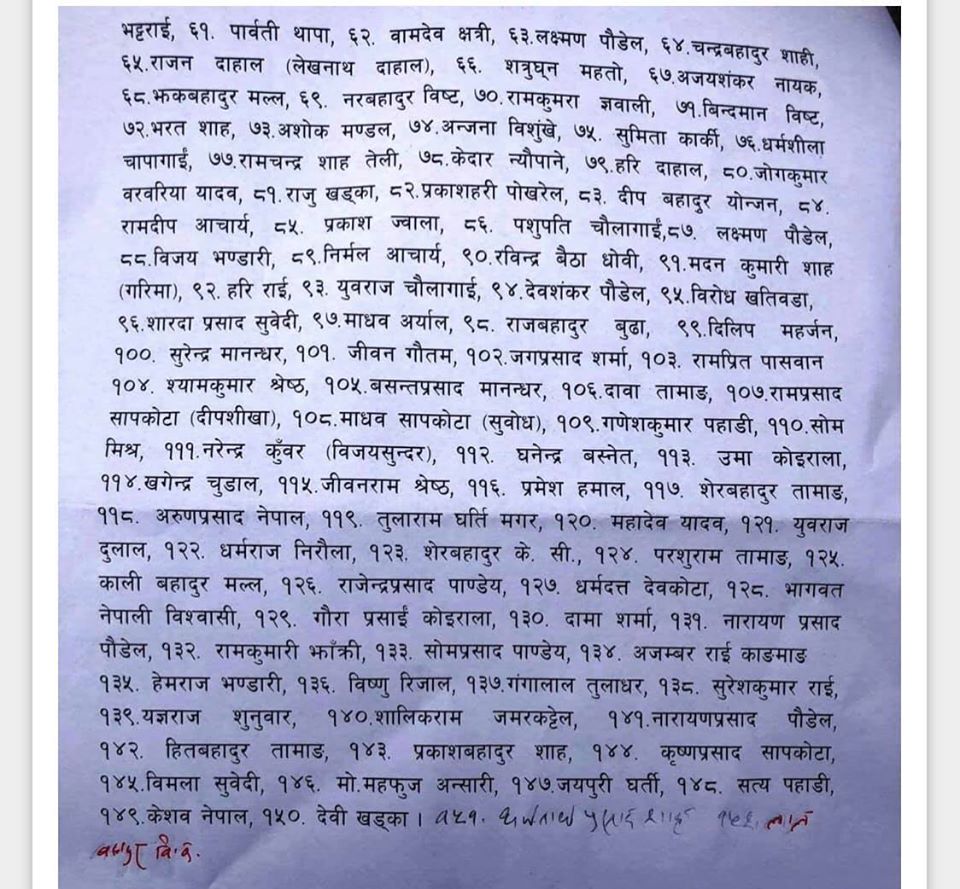 भट्टराई, ६१. पार्वती थापा, ६२. वामदेव क्षत्री, ६३.लक्ष्मण पौडेल, ६४.चन्द्रबहादुर शाही,
६५.राजन दाहाल (लेखनाथ दाहाल), ६६. शत्रुघ्न महतो, ६७.अजयशंकर नायक,
६८.झकबहादुर मल्ल, ६९. नरबहादुर विष्ट, ७०.रामकुमरा ज्ञवाली, ७१.बिन्दमान विष्ट,
७२.भरत शाह, ७३.अशोक मण्डल, ७४.अन्जना विशुंखे, ७५. सुमिता कार्की, ७६.धर्मशीला
चापागाईं, ७७.रामचन्द्र शाह तेली, ७८.केदार न्यौपाने, ७९.हरि दाहाल, ८०.जोगकुमार
वरवरिया यादव, ८१.राजु खड्का, ८२.प्रकाशहरी पोखरेल, ८३. दीप बहादुर योन्जन, ८४.
रामदीप आचार्य, ८५. प्रकाश ज्वाला, ८६. पशुपति चौलागाईं,८७. लक्ष्मण पौडेल,
८८.विजय भण्डारी, ८९.निर्मल आचार्य, ९०.रविन्द्र बैठा धोवी, ९१.मदन कुमारी शाह
(गरिमा), ९२. हरि राई, ९३. युवराज चौलागाई, ९४.देवशंकर पौडेल, ९५.विरोध खतिवडा,
९६.शारदा प्रसाद सुवेदी, ९७.माधव अर्याल, ९८. राजबहादुर बुढा, ९९.दिलिप महर्जन,
१००. सुरेन्द्र मानन्धर, १०१. जीवन गौतम, १०२.जगप्रसाद शर्मा, १०३. रामप्रित पासवान
१०४. श्यामकुमार श्रेष्ठ, १०५.बसन्तप्रसाद मानन्धर, १०६.दावा तामाङ, १०७.रामप्रसाद
सापकोटा (दीपशीखा), १०८.माधव सापकोटा (सुवोध), १०९.गणेशकुमार पहाडी, ११०.सोम
मिश्र, १११.नरेन्द्र कुँवर (विजयसुन्दर), ११२. घनेन्द्र बस्नेत, ११३. उमा कोइराला,
११४.खगेन्द्र चुडाल, ११५.जीवनराम श्रेष्ठ, ११६. प्रमेश हमाल, ११७. शेरबहादुर तामाङ,
११८. अरुणप्रसाद नेपाल, ११९. तुलाराम घर्ति मगर, १२०. महादेव यादव, १२१. युवराज
दुलाल, १२२. धर्मराज निरौला, १२३. शेरबहादुर के. सी., १२४. परशुराम तामाङ, १२५.
काली बहादुर मल्ल, १२६. राजेन्द्रप्रसाद पाण्डेय, १२७. धर्मदत्त देवकोटा, १२८. भागवत
नेपाली विश्वासी, १२९. गौरा प्रसाईं कोइराला, १३०. दामा शर्मा, १३१. नारायण प्रसाद
पौडेल, १३२. रामकुमारी झाँक्री, १३३. सोमप्रसाद पाण्डेय, १३४. अजम्बर राई काङमाङ
१३५. हेमराज भण्डारी, १३६. विष्णु रिजाल, १३७.गंगालाल तुलाधर, १३८. सुरेशकुमार राई,
१३९.यज्ञराज शुनुवार, १४०.शालिकराम जमरकट्टेल, १४१.नारायणप्रसाद पौडेल,
१४२. हितबहादुर तामाङ, १४३. प्रकाशबहादुर शाह, १४४. कृष्णप्रसाद सापकोटा,
१४५.विमला सुवेदी, १४६. मो.महफुज अन्सारी, १४७.जयपुरी घर्ती, १४८. सत्य पहाडी,
१४९.केशव नेपाल, १५०. देवी खड्का । १५१. प्रसाद १५२.
वि.क.